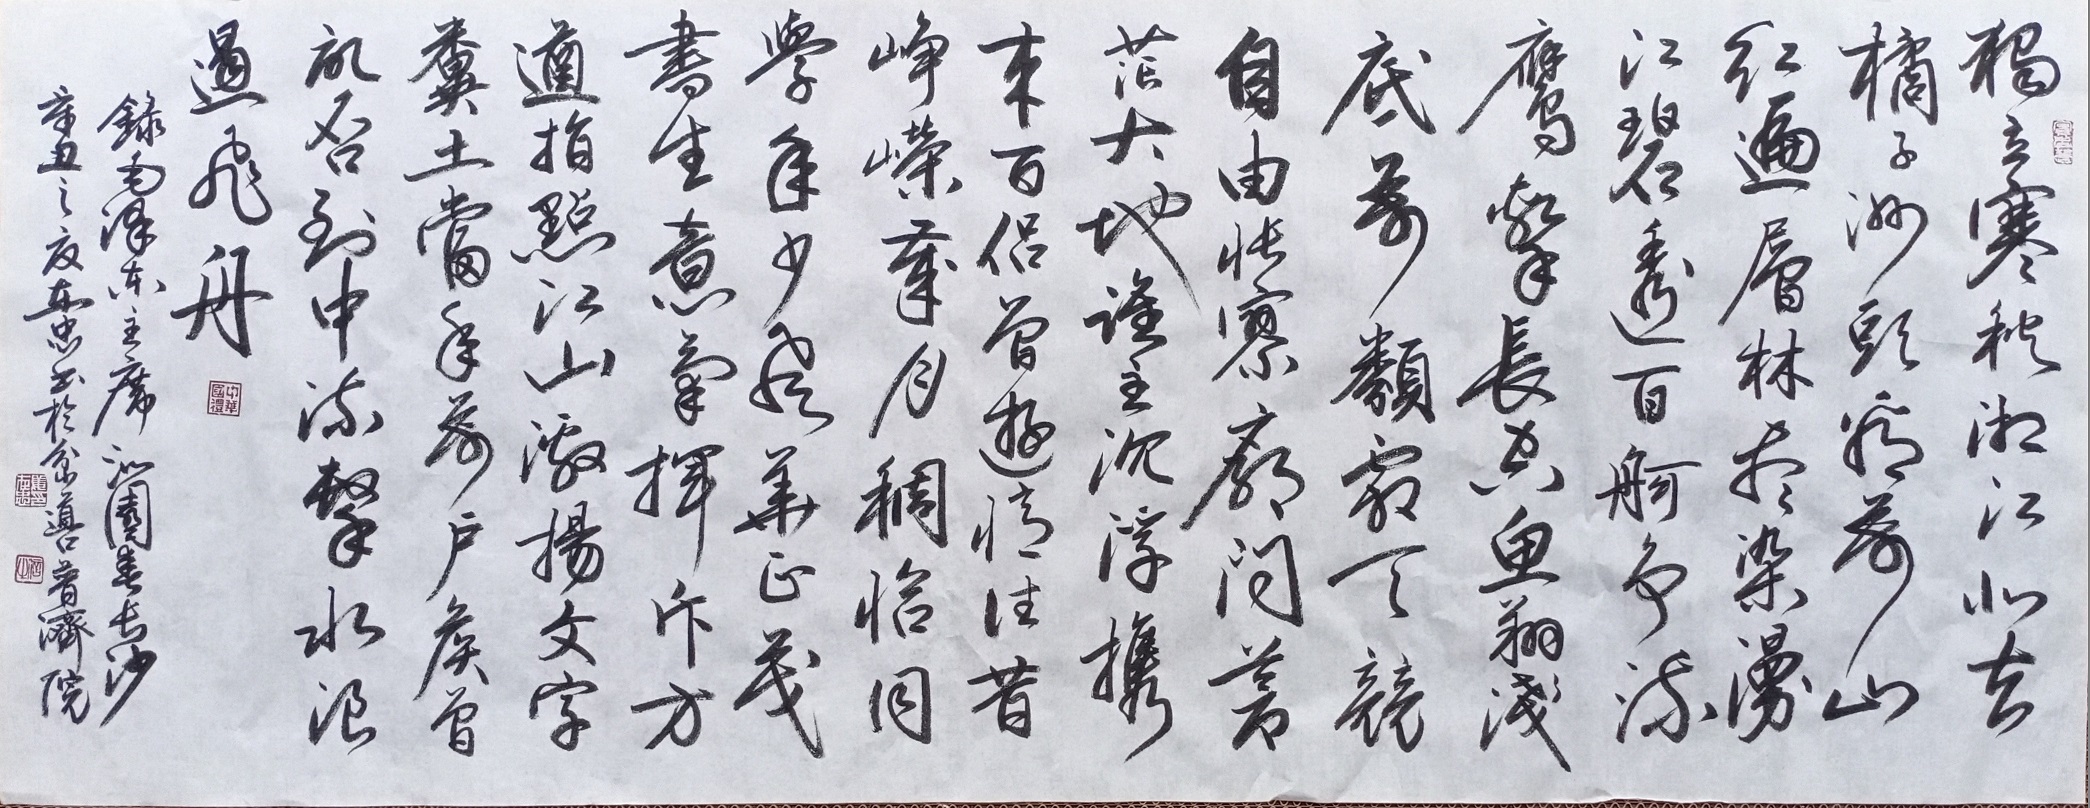 獨立寒秋湘江北去
橘子洲頭看萬山
紅遍層林盡染漫
江碧透百舸争流
鷹擊長空魚翔淺
底萬類霜天競
自由悵寥廓問蒼
茫大地誰主沉浮攜
来百侣曾遊憶往昔
峥嶸歲月稠恰同
學年少風華正茂
書生意氣揮斥方
遒指點江山激揚文字
糞土當年萬户侯曾
記否到中流擊水浪
遏飛舟
中華國禮
錄毛澤東主席沁園春長沙
辛丑之夏東忠書於善普濟院